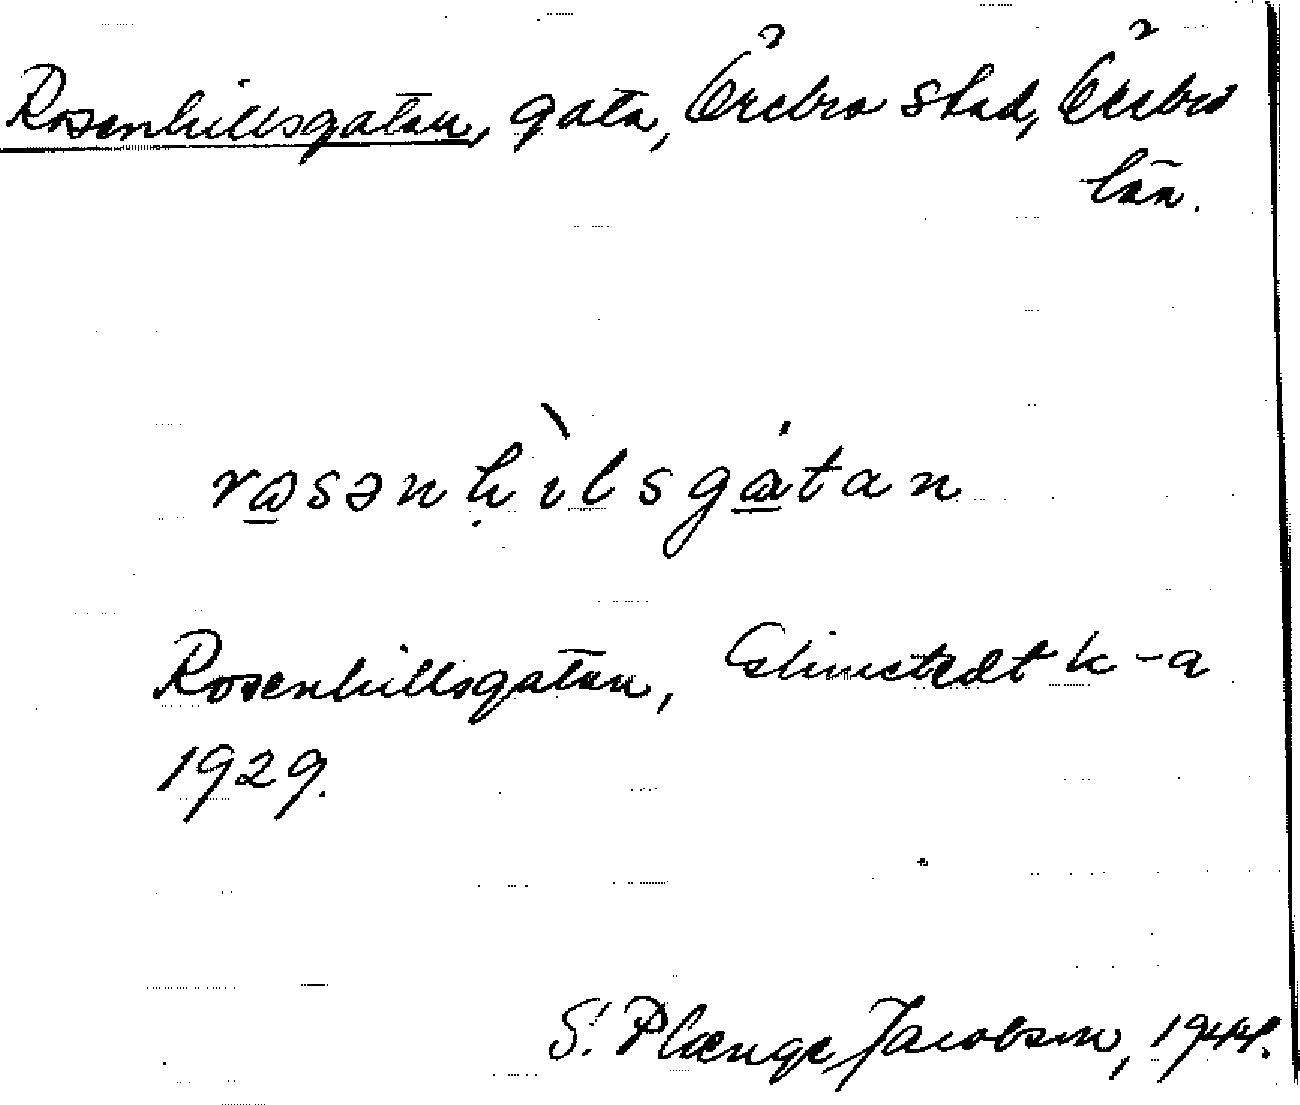 Rosenhillsgatan, gata, Örebro stad, Örebro
län.
rɷsənḥìlsgátan
Rosenhillsgatan, k-a
1929.
S. Plænge Jacobson, 1944.